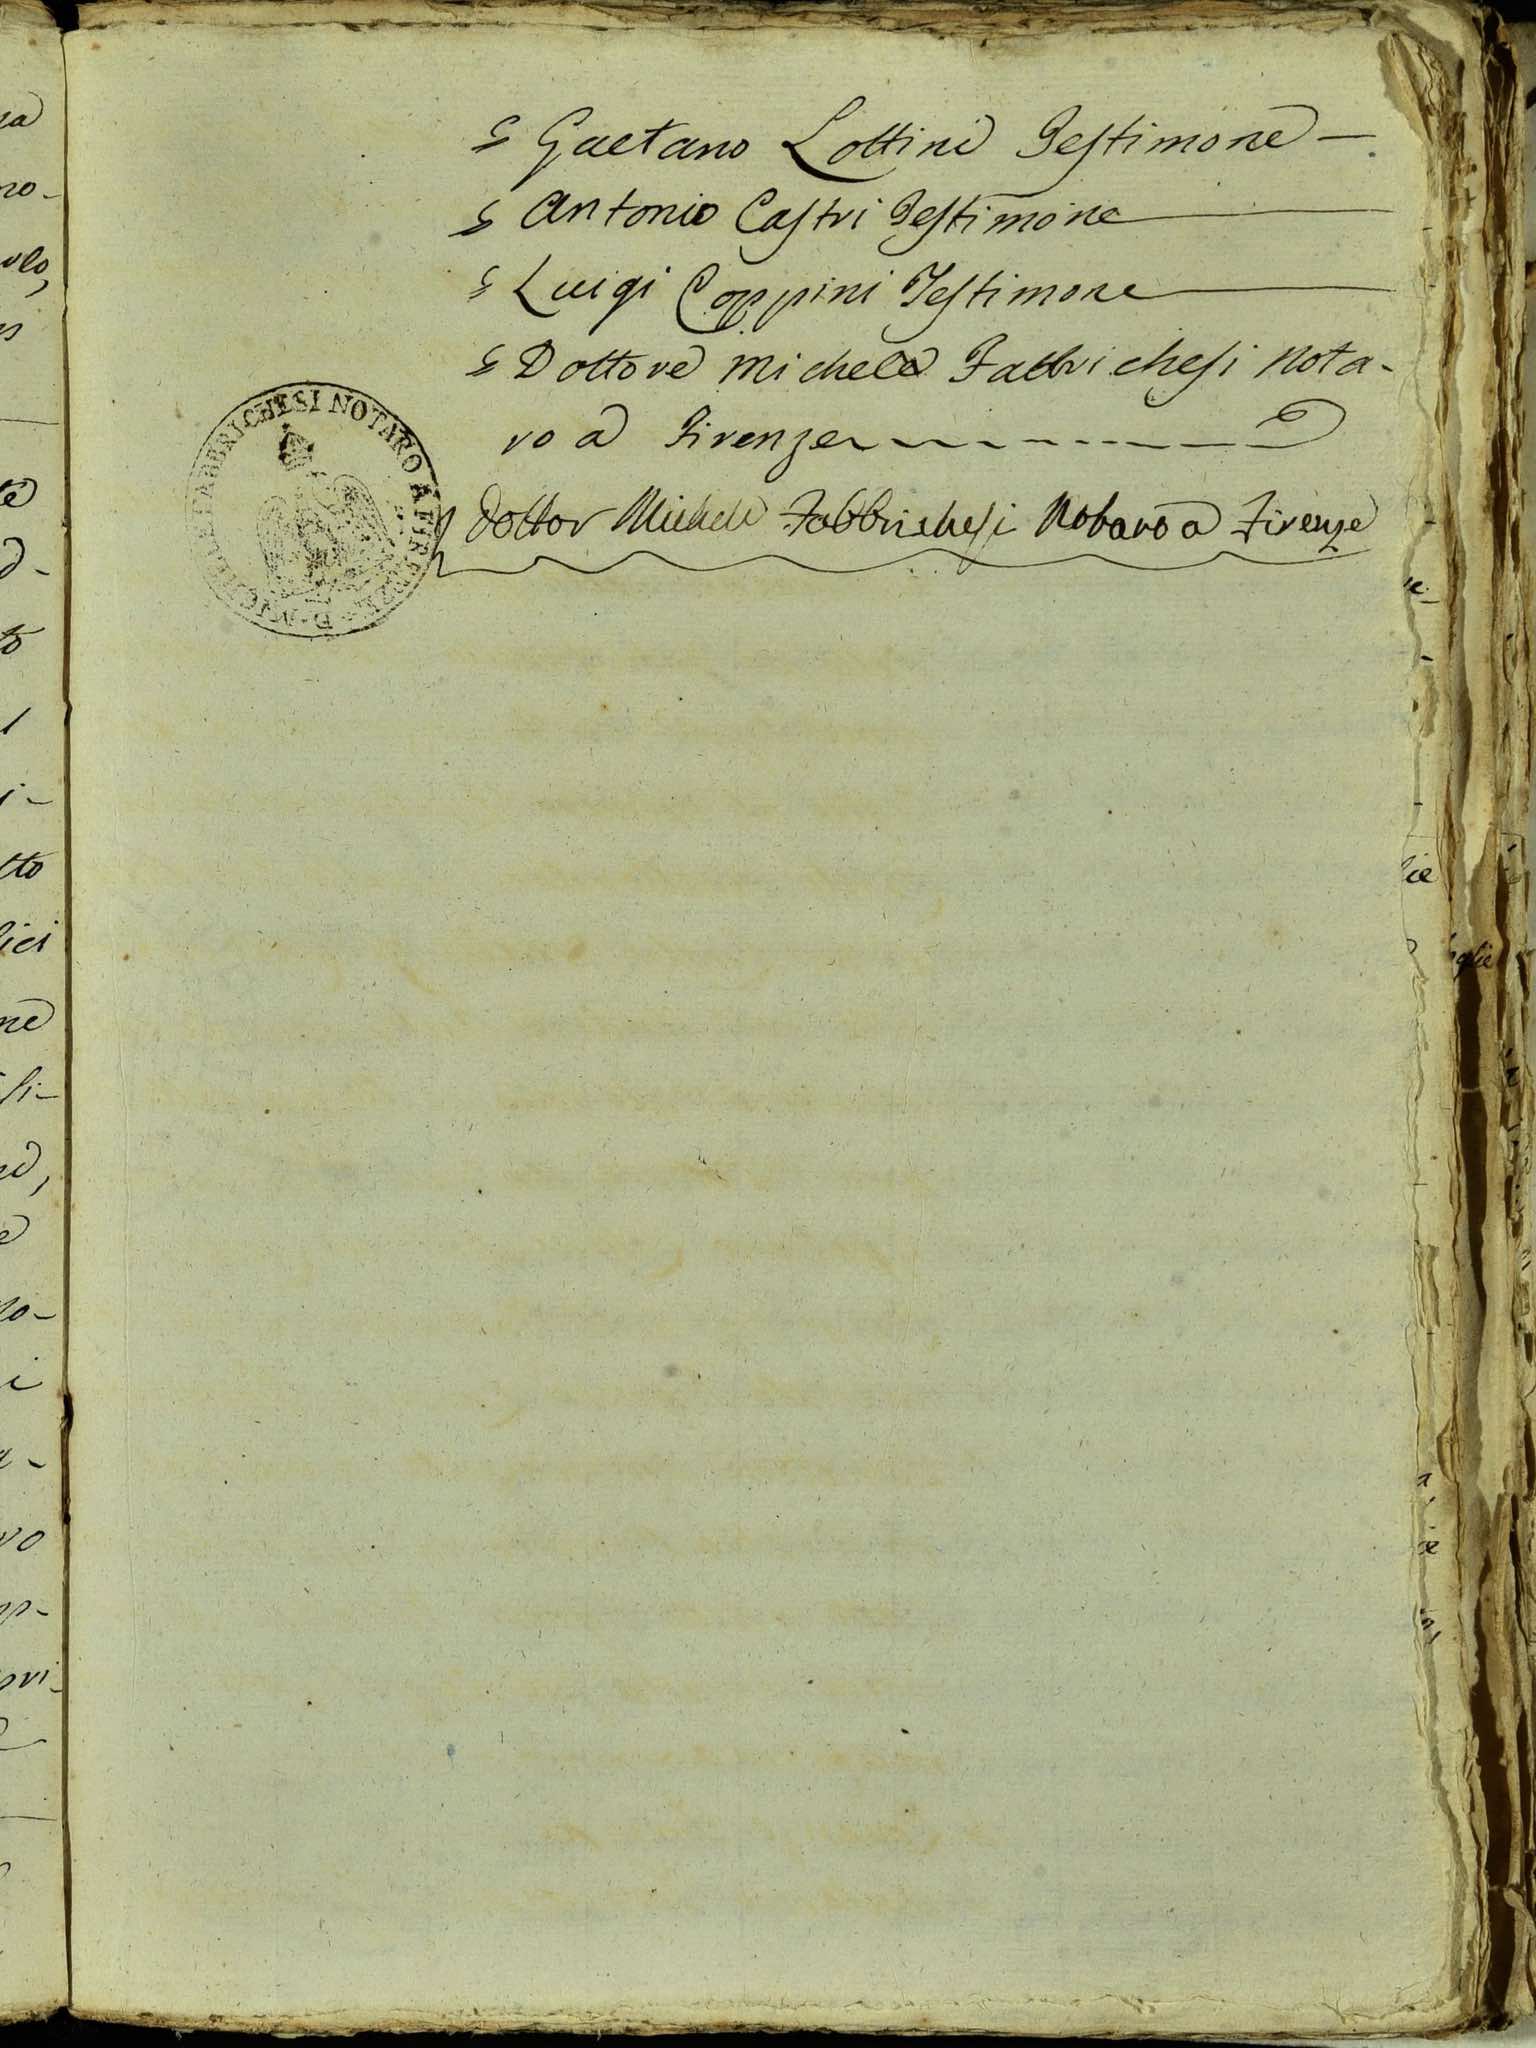 Gaetano Lottini Testimone —
Antonio Castri Testimone
Luigi Coppini Testimone
Dottore Michele Fabbrichesi Nota-
ro a Firenze
Dottor Michele Fabbrichesi Notaro a Firenze
D. MICHELE FABBRICHESI NOTARO A FIRENZE